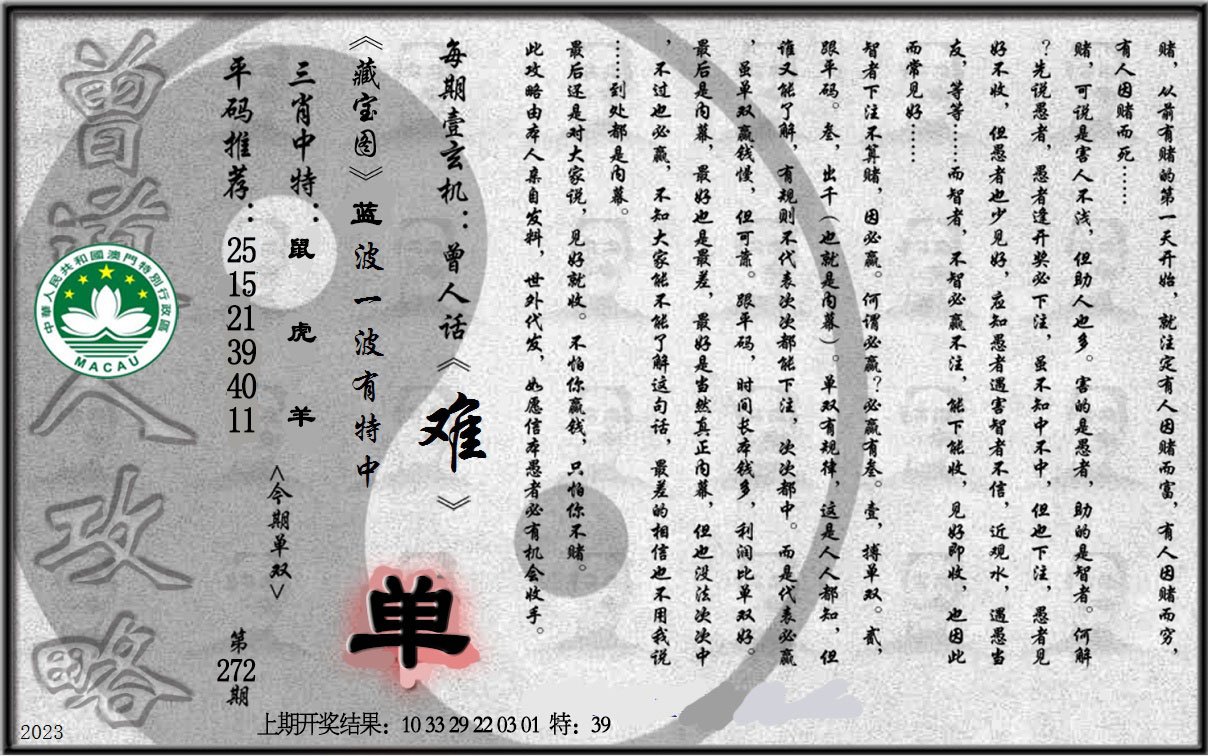 赌，从前有赌的第一天开始，就注定有人因赌而富，有人因赌而穷，
有人因赌而死……
赌，可说是害人不浅，但助人也多。害的是愚者，助的是智者。何解
？先说愚者，愚者逢开奖必下注，虽不知中不中，但也下注，愚者见
好不收，但愚者也少见好，应知愚者遇害智者不信，近观水，遇愚当
友，等等……而智者，不智必赢不注，能下能收，见好即收，也因此
而常见好……
智者下注不算赌，因必赢。何谓必赢？必赢有叁。壹，搏单双。贰，
跟平码。叁，出千（也就是内幕）。单双有规律，这是人人都知，但
谁又能了解，有规则不代表次次都能下注，次次都中。而是代表必赢
，虽单双赢钱慢，但可靠。跟平码，时间长本钱多，利润比单双好。
最后是内幕，最好也是最差，最好是当然真正内幕，但也没法次次中
，不过也必赢，不知大家能不能了解这句话，最差的相信也不用我说
……到处都是内幕。
最后还是对大家说，见好就收。不怕你赢钱，只怕你不赌。
此攻略由本人亲自发料，世外代发，如愿信本愚者必有机会收手。
每期壹玄机：曾人话《难》
《藏宝图》蓝波一波有特中
单
三肖中特：鼠 虎 羊
<今期单双>
平码推荐：25 15 21 39 40 11
第272期
曾道人攻略
中華人民共和國澳門特別行政區
MACAU
上期开奖结果：10 33 29 22 03 01 特：39
2023